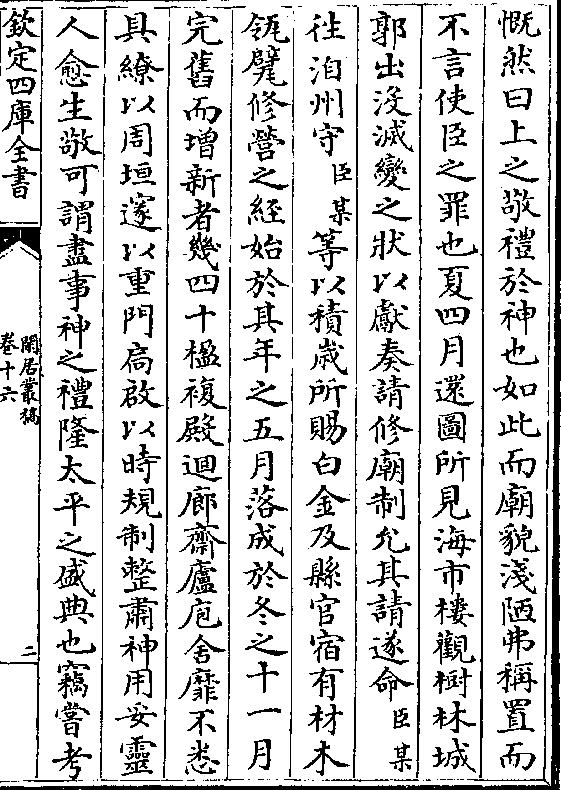 慨然曰上之敬禮於神也如此而廟貌淺陋弗稱置而
不言使臣之罪也夏四月還圖所見海市樓觀樹林城
郭出没滅變之狀以獻奏請修廟制允其請遂命臣某
徃洎州守臣某等以積嵗所賜白金及縣官宿有材木
瓴甓修營之經始於其年之五月落成於冬之十一月
完舊而增新者幾四十楹複殿迴廊齋廬庖舍靡不悉
具繚以周垣邃以重門扄啟以時規制整肅神用妥靈
人愈生敬可謂盡事神之禮隆太平之盛典也竊嘗考
欽定四庫全書
閒居叢稿
卷十六
二